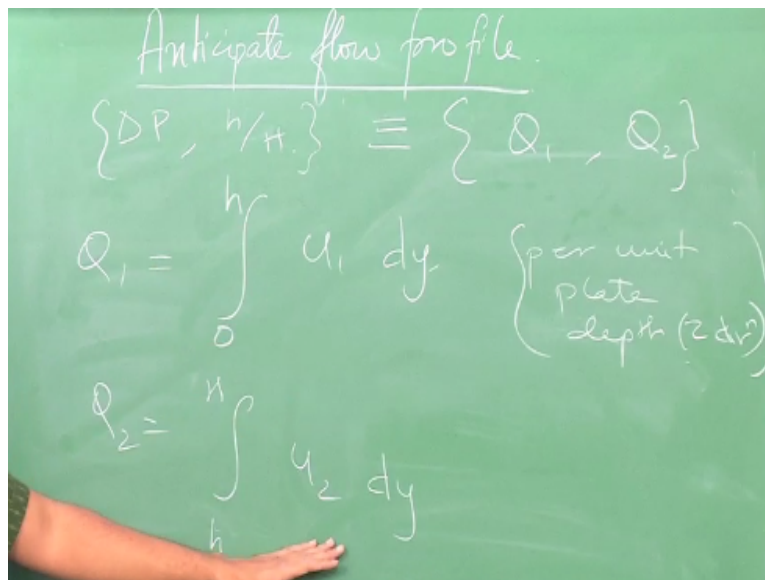 Anticipate flow profile.
{DP, h/H.} ≡ { Q₁, Q₂}
Q₁ = ∫₀ʰ u₁ dy. {per unit
plate
depth (z dirⁿ)}
Q₂ = ∫ₕᴴ u₂ dy